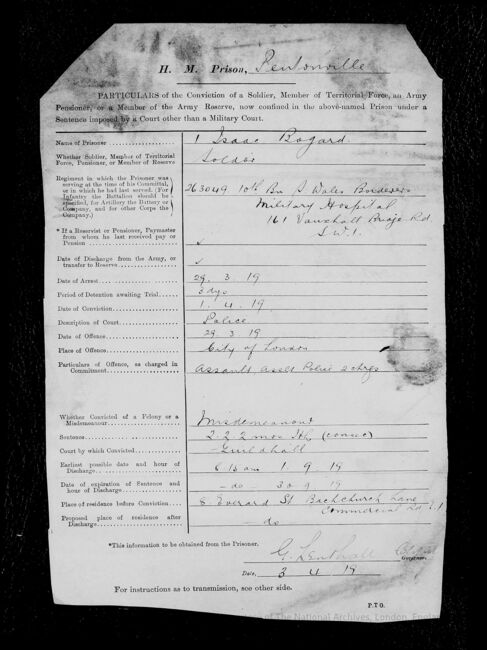 H. M. Prison, Pentonville
PARTICULARS of the Conviction of a Soldier, Member of Territorial Force, an Army
Pensioner, or a Member of the Army Reserve, now confined in the above-named Prison under a
Sentence imposed by a Court other than a Military Court.
Name of Prisoner 1 Isaac Bogard
Whether Soldier, Member of Territorial
Force, Pensioner, or Member of Reserve Soldier
Regiment in which the Prisoner was
serving at the time of his Committal,
or in which he had last served. (For
Infantry the Battalion should be
specified, for Artillery the Battery or
Company, and for other Corps the
Company.)
263049 10th Bn S Wales Borderers
Military Hospital
161 Vauxhall Bridge Rd
S.W.1.
* If a Reservist or Pensioner, Paymaster
from whom he last received pay or
Pension
Date of Discharge from the Army, or
transfer to Reserve
Date of Arrest 29. 3. 19
Period of Detention awaiting Trial 3 dys
Date of Conviction 1. 4. 19
Description of Court Police
Date of Offence 29. 3. 19
Place of Offence City of London
Particulars of Offence, as charged in
Commitment Assault Police 2 chrgs
Whether Convicted of a Felony or a
Misdemeanour Misdemeanour
Sentence 2. 2. 2 mos HL (consec)
Court by which Convicted Guildhall
Earliest possible date and hour of
Discharge 8 15 am 1. 9. 19
Date of expiration of Sentence and
hour of Discharge - do 30. 9 19
Place of residence before Conviction 8 Everard St Backchurch Lane
Commercial Rd E.1
Proposed place of residence after
Discharge do
*This information to be obtained from the Prisoner.
Governor.
Date, 3 4 19
For instructions as to transmission, see other side.
P.T.O.
of The National Archives, London, England